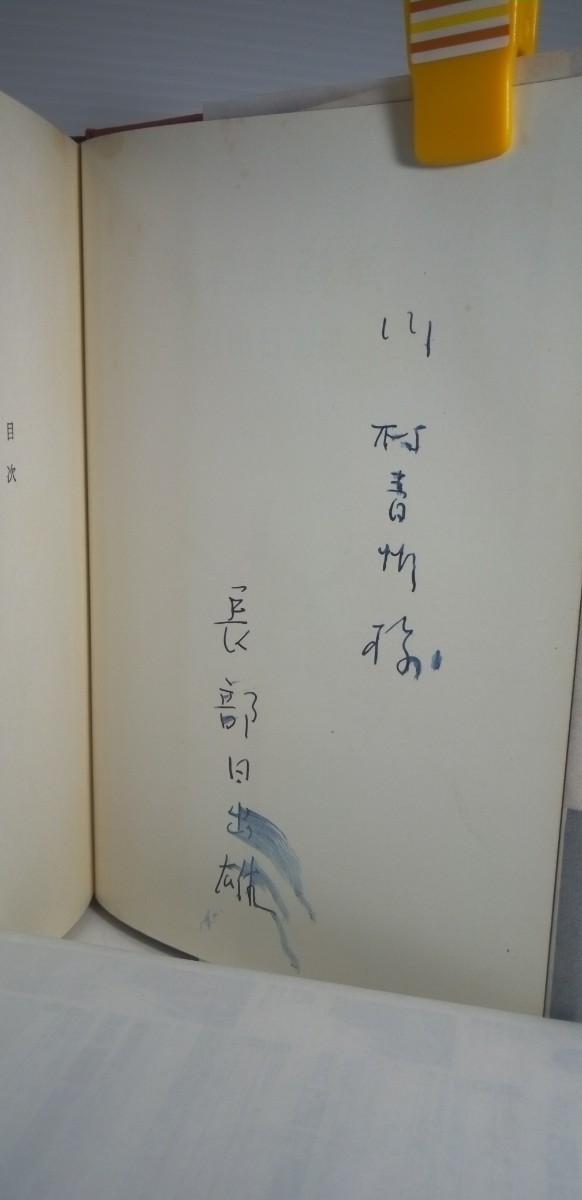 川村青䣭様
長部日出雄
目次